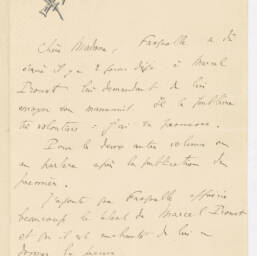 Chère Madame, Fasquelle a dû
écrire il y a 2 jours déjà à Marcel
Proust lui demandant de lui
envoyer son manuscrit. Il le publiera
très volontiers : j'ai sa promesse.
Pour les deux autres volumes on
en parlera après la publication du
premier.
J'ajoute que Fasquelle apprécie
beaucoup le talent de Marcel Proust
et qu'il est enchanté de lui en
donner la preuve